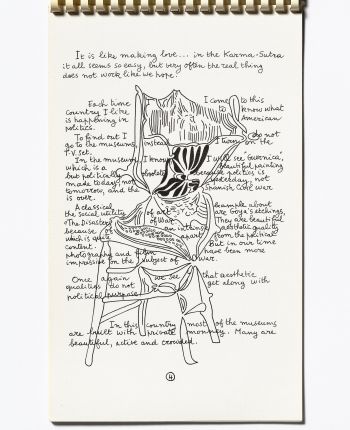 It is like making love... in the Karma-Sutra
it all seems so easy, but very often the real thing
does not work like we hope.
Each time I come to this
country I like to know what
is happening in American
politics.
To find out I do not
go to the museums, instead I turn on the
T.V. set.
In the museums I know I will see "Guernica",
which is a beautiful painting
but politically obsolete because politics is
made today, not yesterday, not
tomorrow, and the Spanish Civil war
is over.
A classical example about
the social utility of art are Goya's etchings,
"The Disasters of War". They are beautiful
because of an intense aesthetic quality
which is quite apart from the political
content. But in our time
photography and film have been more
impressive on the subject of war.
Once again we see that aesthetic
qualities do not get along with
political purpose.
In this country most of the museums
are built with private monney. Many are
beautiful, active and crowded.
4